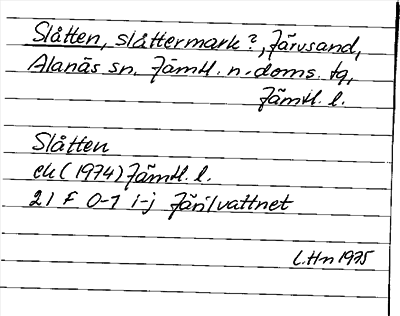 Slåtten, slåttermark?, Järvsand,
Alanäs sn. Jämtl. n. doms. tg,
Jämtl. l.
Slåtten
ek (1974) Jämtl. l.
21 F 0-1 i-j Järilvattnet
L.Hn 1975